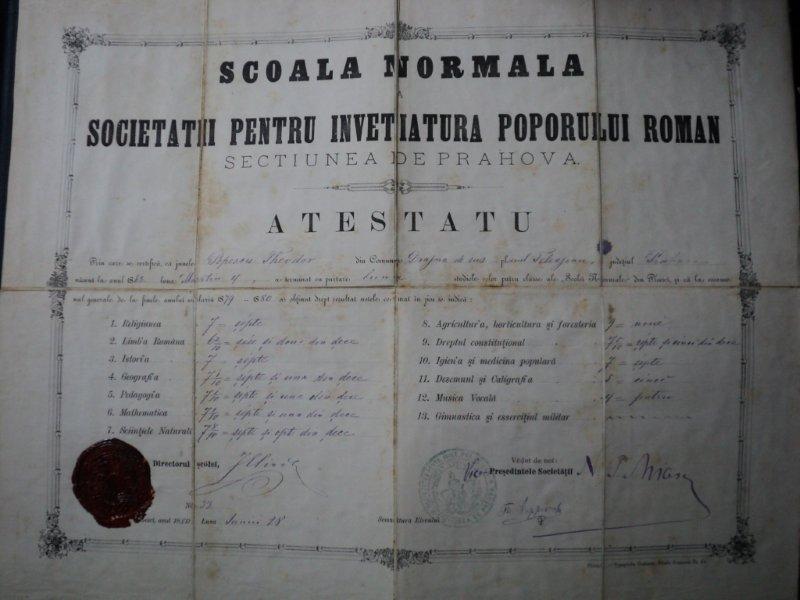 SCOALA NORMALA
A
SOCIETATII PENTRU INVETIATURA POPORULUI ROMAN
SECTIUNEA DE PRAHOVA.
ATESTATU
Prin care se certifică, că junele Popescu Theodor din Comuna Drajna de sus plaiul Teleajen, județiul
născut la anul 186 luna Martiu 4, a terminat cu purtare buna studiele celor patru classe ale Scolei Normale din Ploesci, și că la esame-
nul generale de la finele anului scolariu 1879 - 1880 a obținut drept resultat notele ce mai în jos se indică:
1. Religiunea 7 = septe
2. Limb'a Româna 6 2/10 = sése si doue din dece
3. Istori'a 7 = septe
4. Geografi'a 7 1/10 = septe si una din dece
5. Pedagogi'a 7 1/10 = septe si una din dece
6. Mathematica 7 1/10 = septe si una din dece
7. Sciințele Naturali 7 7/10 = septe și epte din dece
8. Agricultur'a, horticultura și foresteria 9 = noue
9. Dreptul constituțional 7 5/10 = septe si cinci din dece
10. Igien'a și medicina populară 7 = septe
11. Desemnul și Caligrafi'a 5 = cinci
12. Musica Vocală 4 = patru
13. Gimnastica și essercițiul militar
Directorul școlei,
Vĕdut de noi:
Vice Președintele Societății
No. 33
anul 1880 Luna Junii 28
Semnătura Elevului